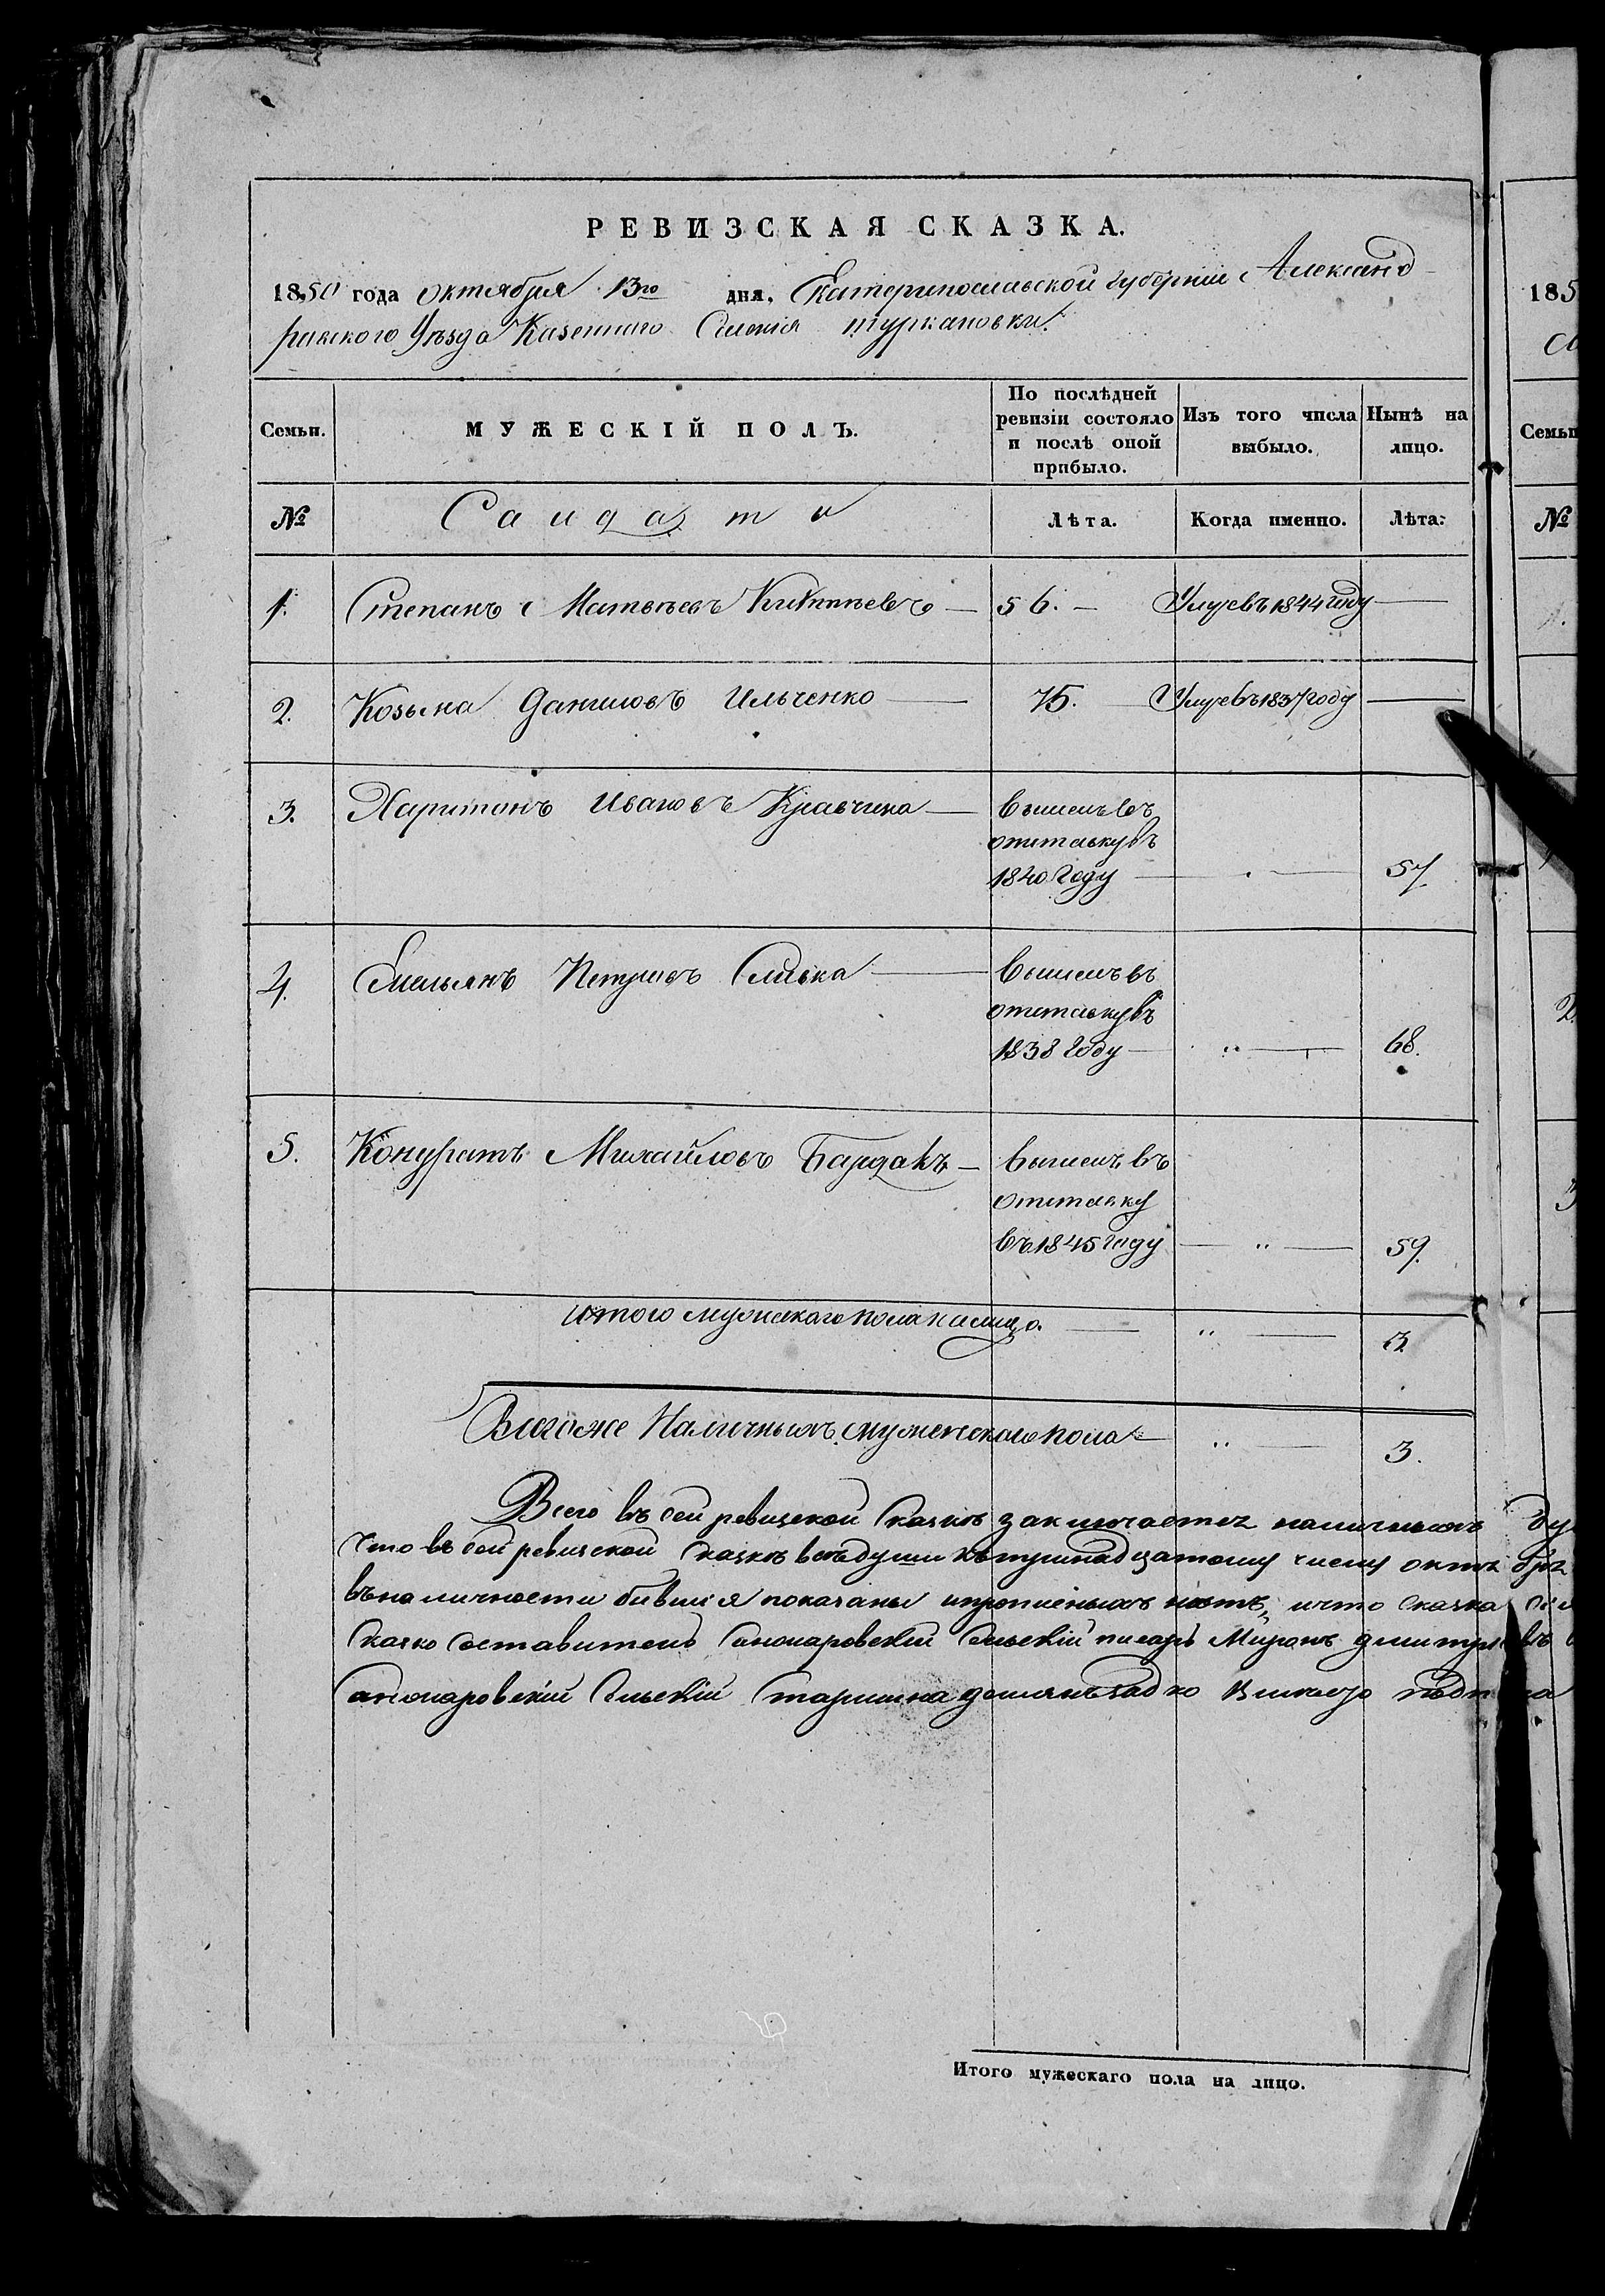 РЕВИЗСКАЯ СКАЗКА.
1850 года октября 13го дня, Екатеринославской губерніи Александ-
ровского Уѣзда Казенного Селенія туркановки.
Семьи.
МУЖЕСКІЙ ПОЛЪ.
По послѣдней ревизіи состояло и послѣ оной прибыло.
Изъ того числа выбыло.
Нынѣ на лицо.
№ Салдаты Лѣта. Когда именно. Лѣта.
1. Степанъ Матвѣевъ 56. — Умре въ 1844 году —
2. Козьма Даниловъ Ильченко — 75. Умре въ 1837 году —
3. Харитонъ Ивановъ Кравчина — вышелъ въ
отставку въ
1840 году — 57.
4. Емельянъ Петровъ Сливка — вышелъ въ
отставку въ
1838 году — „ — 68.
5. Кондратъ Михайловъ Бардакъ — вышелъ въ
отставку
въ 1845 году — „ — 59.
итого мужескаго пола налицо. — „ — 3.
Всего же Наличныхъ мужескаго пола — „ — 3.
Всего въ сей ревизской сказкѣ заключается наличныхъ ду
Что въ сей ревизской сказкѣ всѣ души къ тринадцатому числу октября
въ наличности бывшія показаны и прописныхъ нѣтъ, и что сказка
сказко составителъ Сельскій писарь Миронъ дмитріевъ
Сельскій старшина
Итого мужескаго пола на лицо.
185
Семьи
№
2.
3